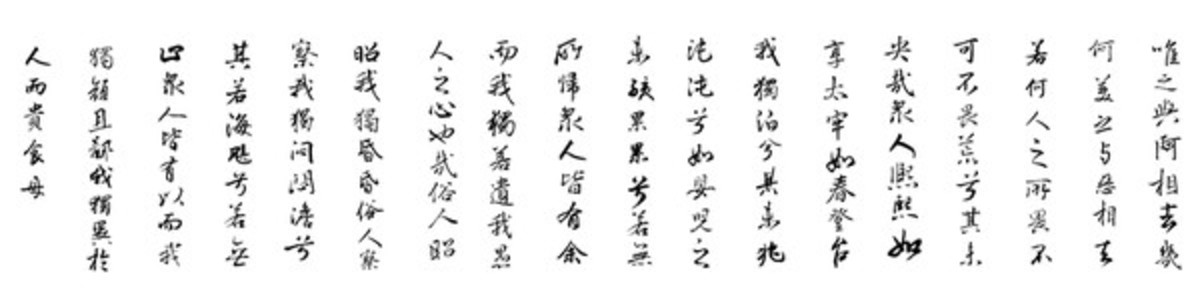 唯之與阿相去幾
何美之与惡相去
若何人之所畏不
可不畏荒兮其未
央哉衆人熙熙如
享太牢如春登台
我獨泊兮其未兆
沌沌兮如嬰兒之
未孩累累兮若無
所歸衆人皆有余
而我獨若遺我愚
人之心也哉俗人昭
昭我獨昏昏俗人察
察我獨悶悶澹兮
其若海飂兮若無
止衆人皆有以而我
獨頑且鄙我獨異於
人而貴食母